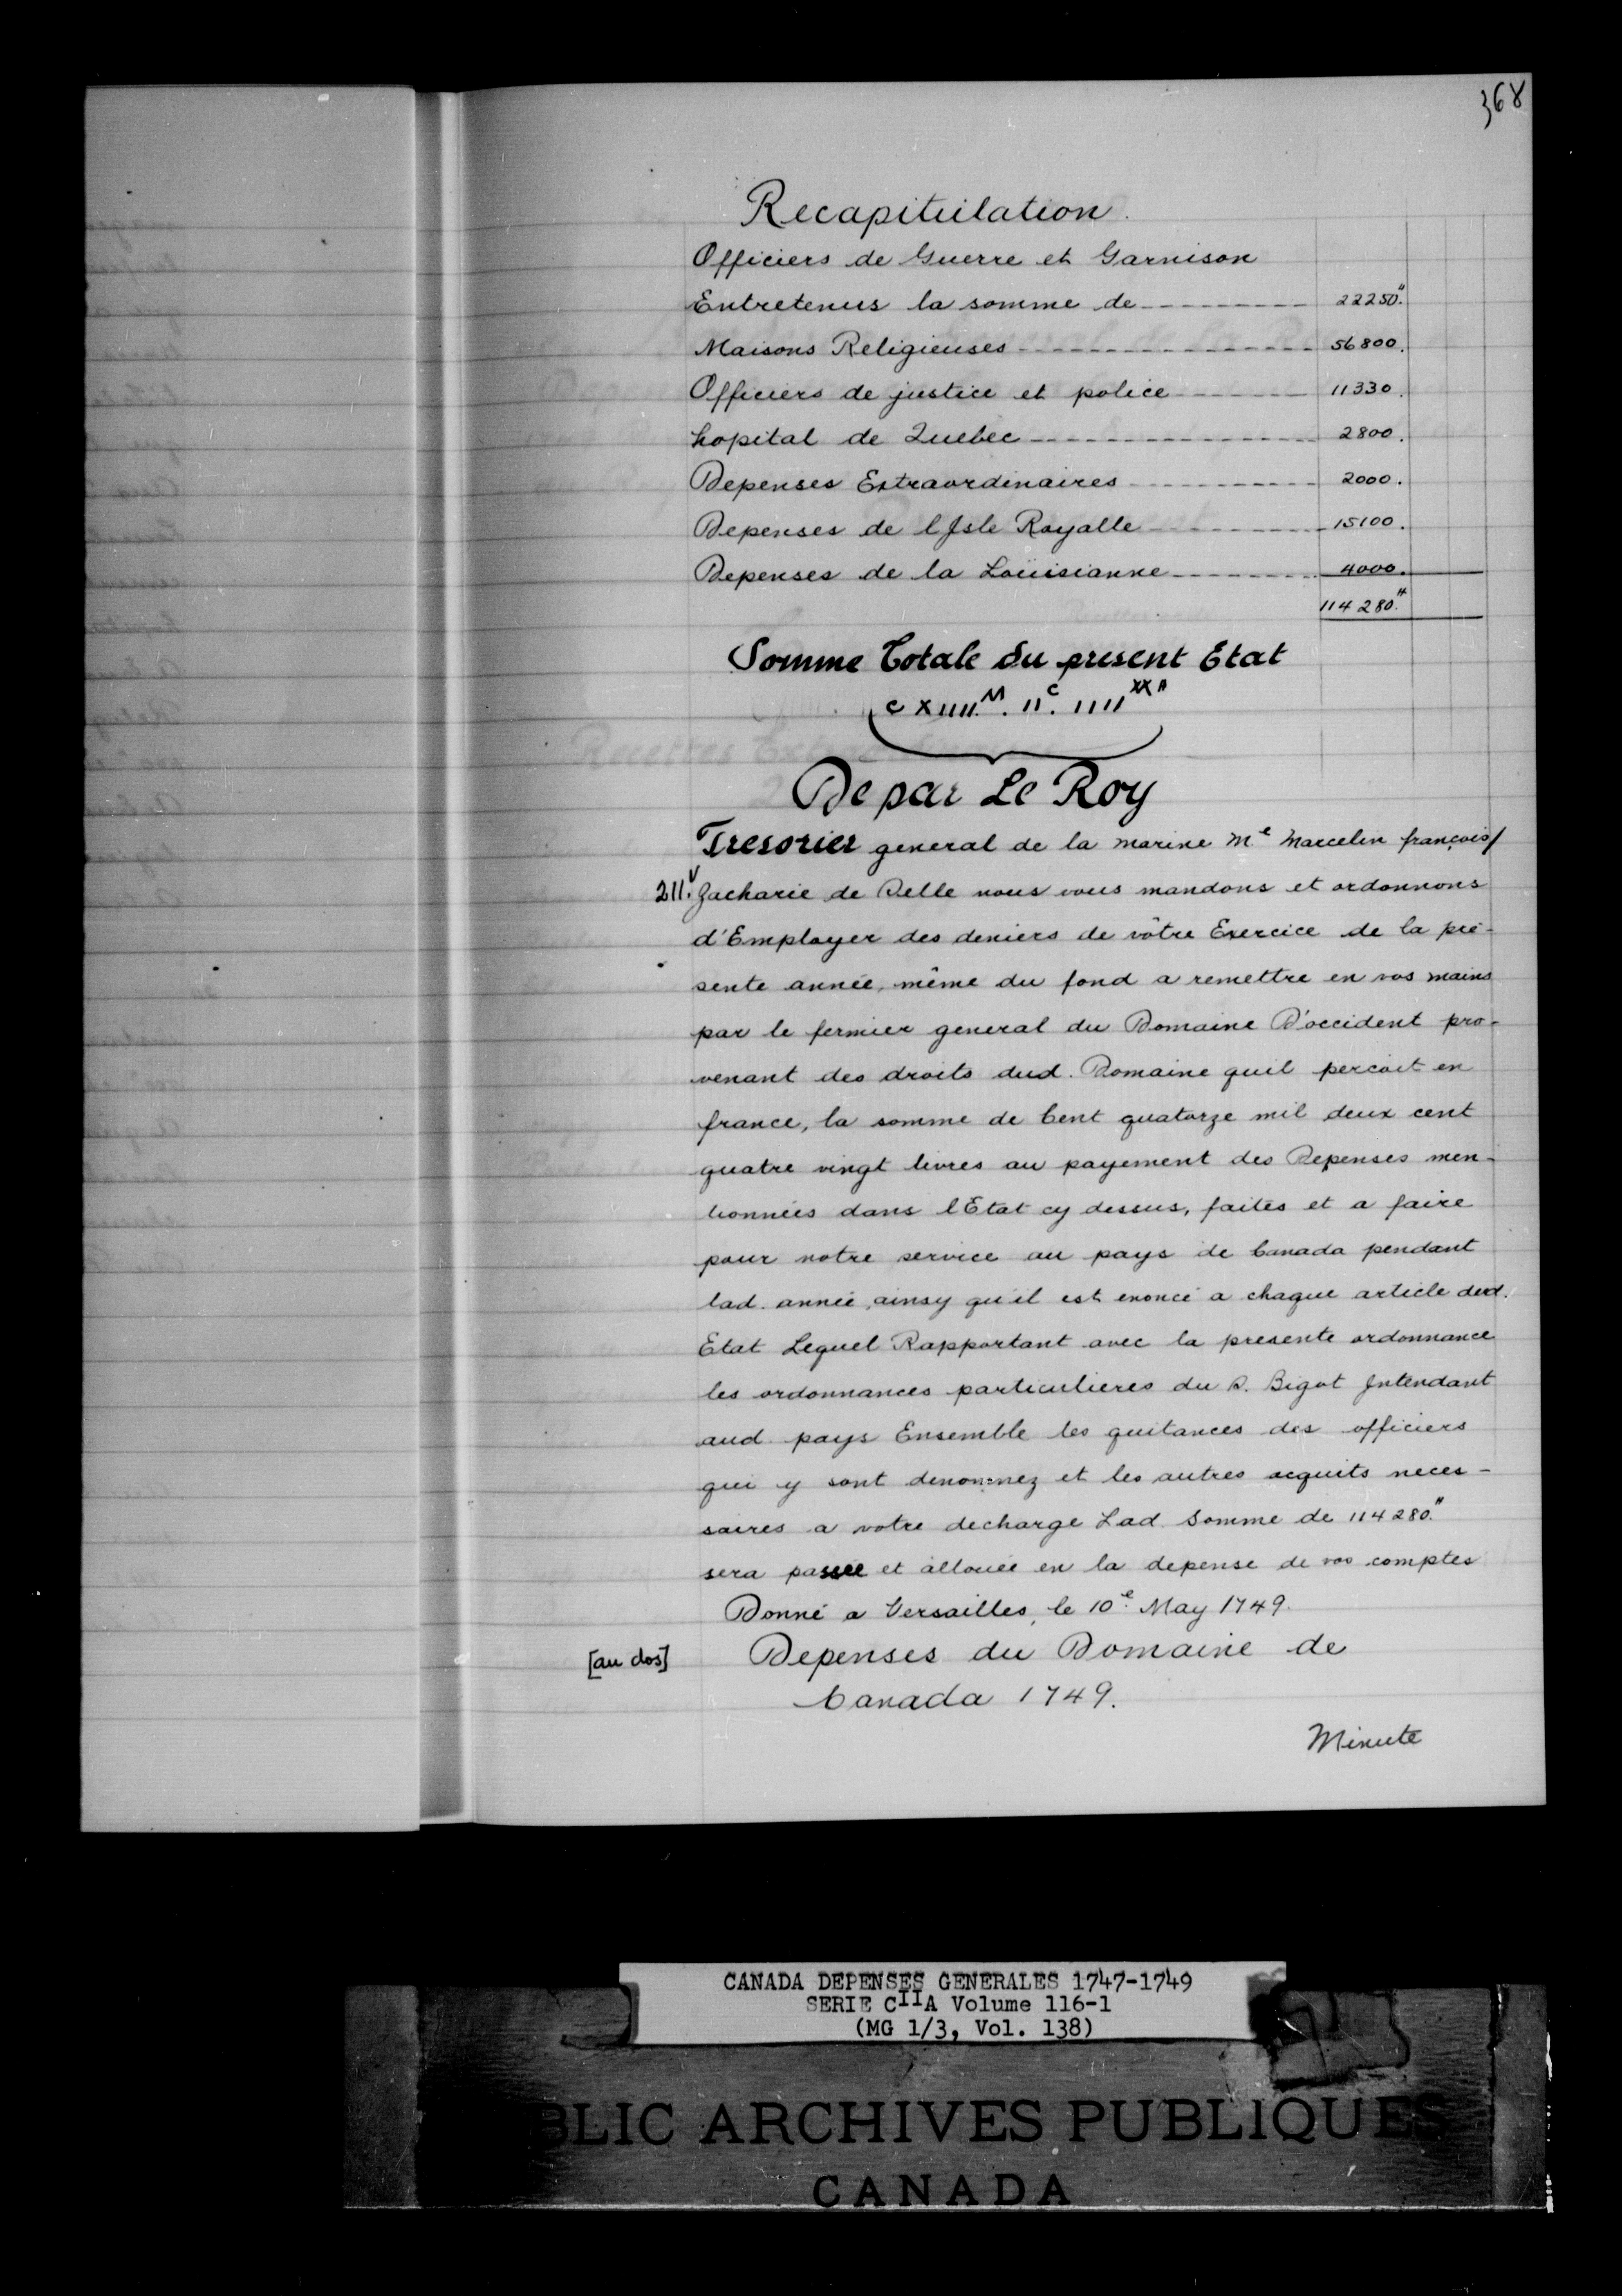 368
Recapitulation.
Officiers de Guerre et Garnison
Entretenus la somme de 22250."
Maisons Religieuses 56800.
Officiers de justice et police 11330.
hopital de Quebec 2800.
Depenses Extraordinaires 2000.
Depenses de l Isle Royalle 15100.
Depenses de la Loüisianne 4000.
114280."
Somme Totale du present Etat
c xiiii.M. II.c IIII XX "
De par Le Roy
Tresorier general de la marine Me Marcelin françois/
211.v Zacharie de Selle nous vous mandons et ordonnons
d'Employer des deniers de vôtre Exercice de la pré-
sente année, même du fond a remettre en vos mains
par le fermier general du Domaine D'occident pro-
venant des droits dud. Domaine quil percoit en
france, la somme de Cent quatorze mil deux cent
quatre vingt livres au payement des Depenses men-
tionnées dans l Etat cy dessus, faites et a faire
pour notre service au pays de Canada pendant
lad. année, ainsy qu'il est enoncé a chaque article dud.
Etat Lequel Rapportant avec la presente ordonnance
les ordonnances particulieres du S. Bigot Intendant
aud. pays Ensemble les quitances des officiers
qui y sont denommez et les autres acquits neces-
saires a votre decharge Lad. Somme de 114280."
sera passée et allouée en la depense de vos comptes
Donné a Versailles, le 10e May 1749.
[au dos] Depenses du Domaine de
Canada 1749.
Minute
CANADA DEPENSES GENERALES 1747-1749
SERIE CIIA Volume 116-1
(MG 1/3, Vol. 138)
BLIC ARCHIVES PUBLIQUES
CANADA